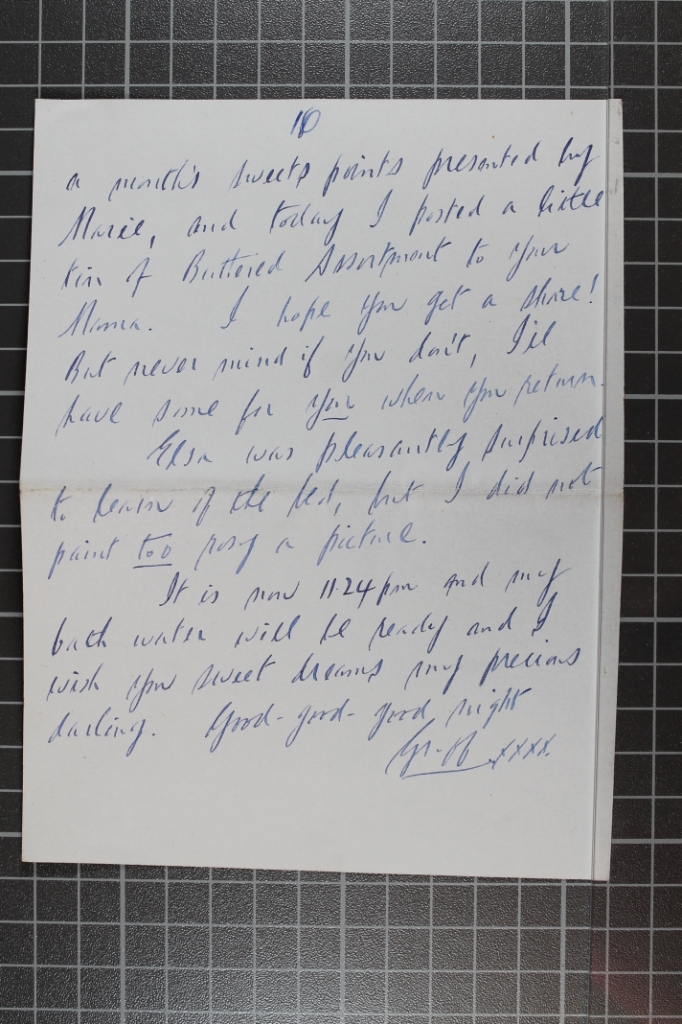 10
a month's sweets points presented by
Marie, and today I posted a little
tin of Buttered Assortment to your
Mama. I hope you get a share!
But never mind if you don't, I'll
have some for you when you return.
Elsa was pleasantly surprised
to learn of the bed, but I did not
paint too rosy a picture.
It is now 11.24 pm and my
bath water will be ready and I
wish you sweet dreams my precious
darling. Good-good-good night
xxxx.